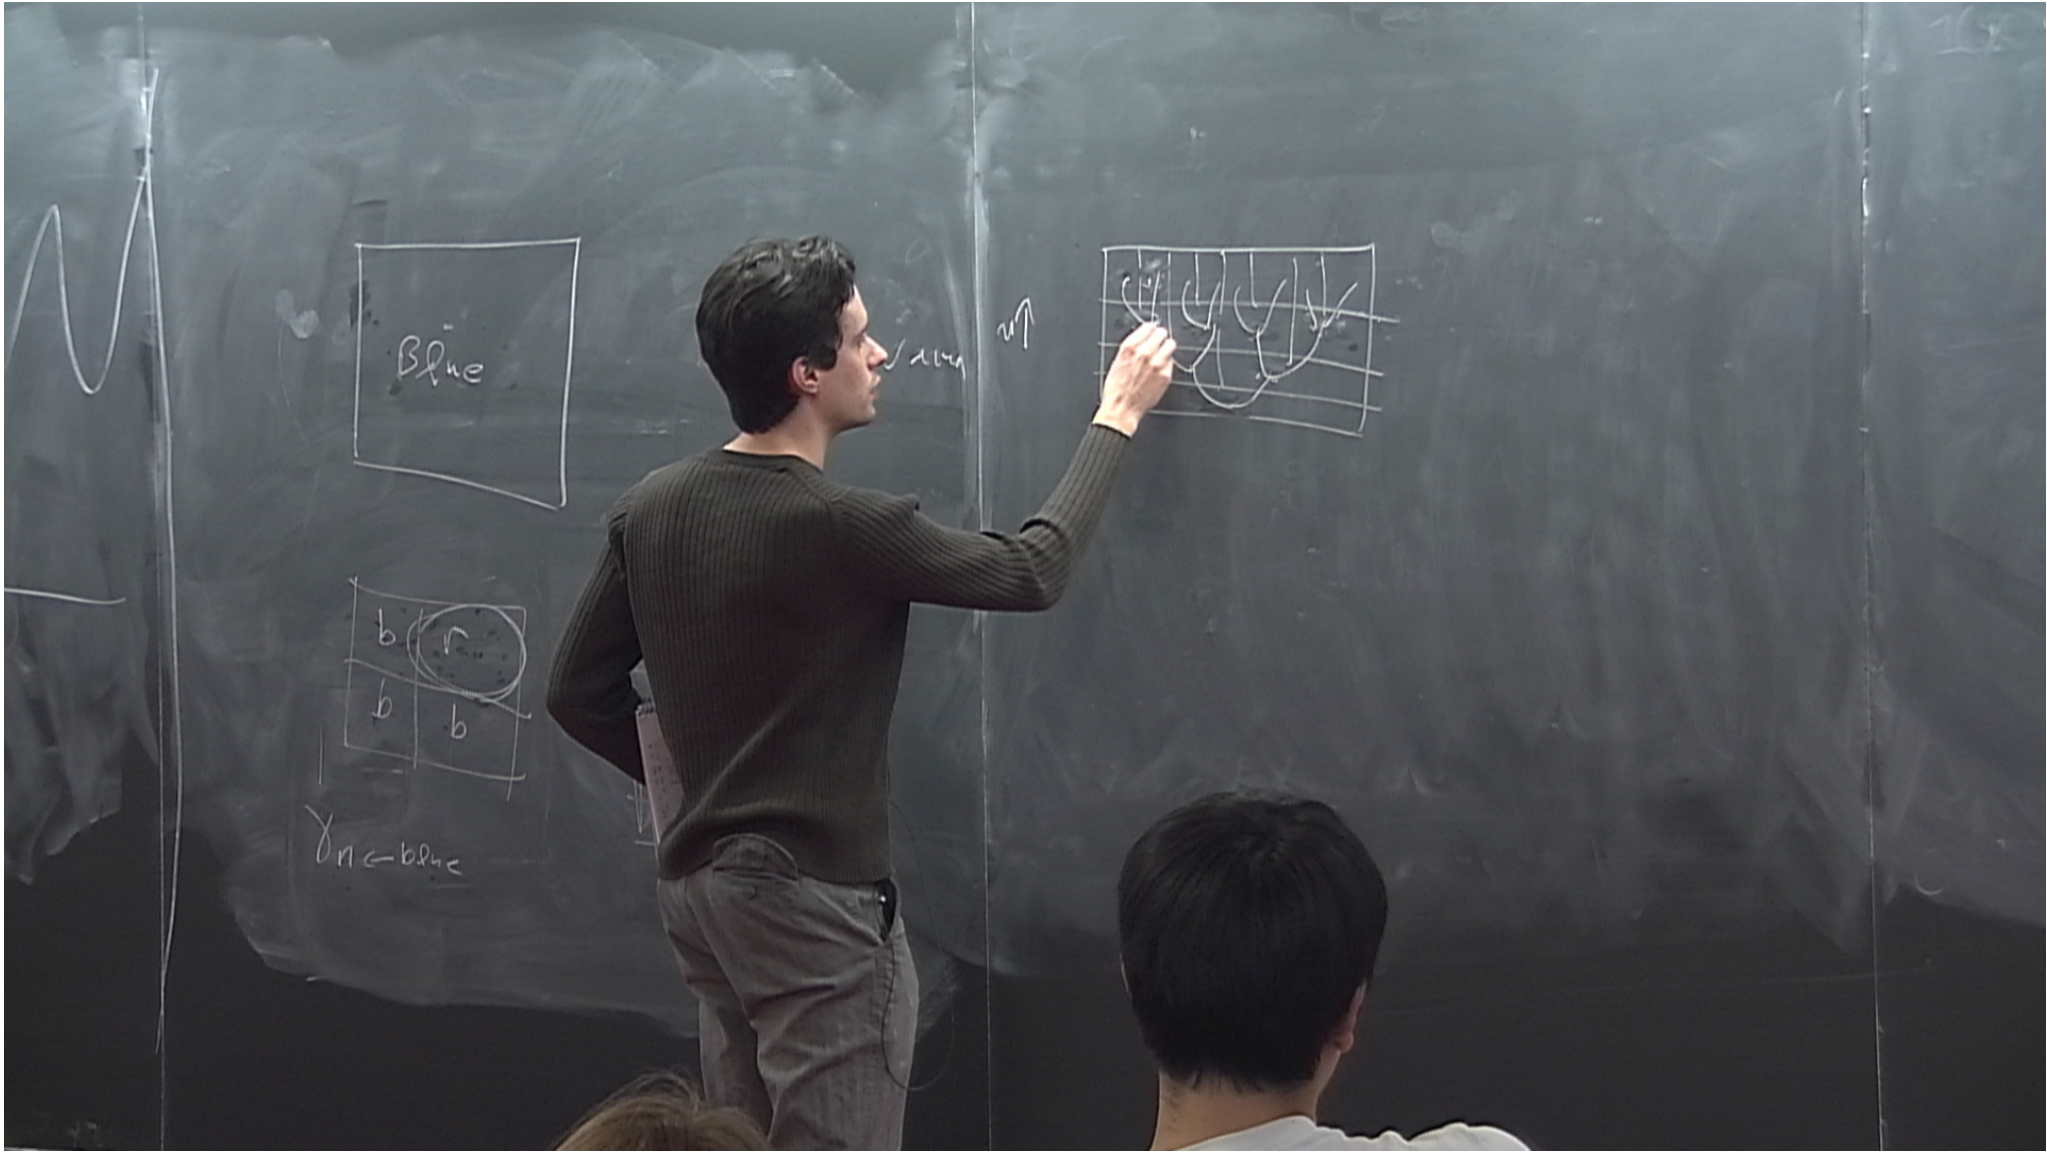 Blue
b r
b b
γn ← blue
n↑